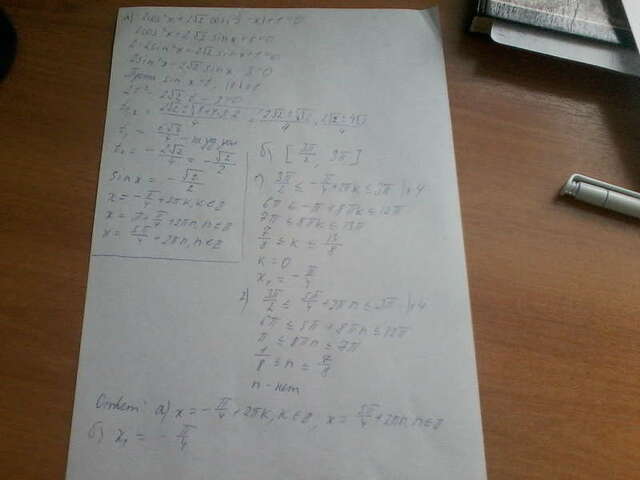 а) 2cos²x + 2√2 cos(π/2 - x) + 1 = 0
2cos²x + 2√2 sinx + 1 = 0
2 - 2sin²x + 2√2 sinx + 1 = 0
2sin²x - 2√2 sinx - 3 = 0
sinx = t, |t| ≤ 1
2t² - 2√2 t - 3 = 0
t₂ = -2√2/4 = -√2/2
sinx = -√2/2
x = -π/4 + 2πk, k∈Z
x = π + π/4 + 2πn, n∈Z
x = 5π/4 + 2πn, n∈Z
б) [3π/2, 3π]
1) 3π/2 ≤ -π/4 + 2πk ≤ 3π |·4
6π ≤ -π + 8πk ≤ 12π
7π ≤ 8πk ≤ 13π
7/8 ≤ k ≤ 13/8
k = 0
x₁ = -π/4
2) 3π/2 ≤ 5π/4 + 2πn ≤ 3π |·4
6π ≤ 5π + 8πn ≤ 12π
π ≤ 8πn ≤ 7π
1/8 ≤ n ≤ 7/8
n - нет
Ответ: а) x = -π/4 + 2πk, k∈Z, x = 5π/4 + 2πn, n∈Z
б) x₁ = -π/4